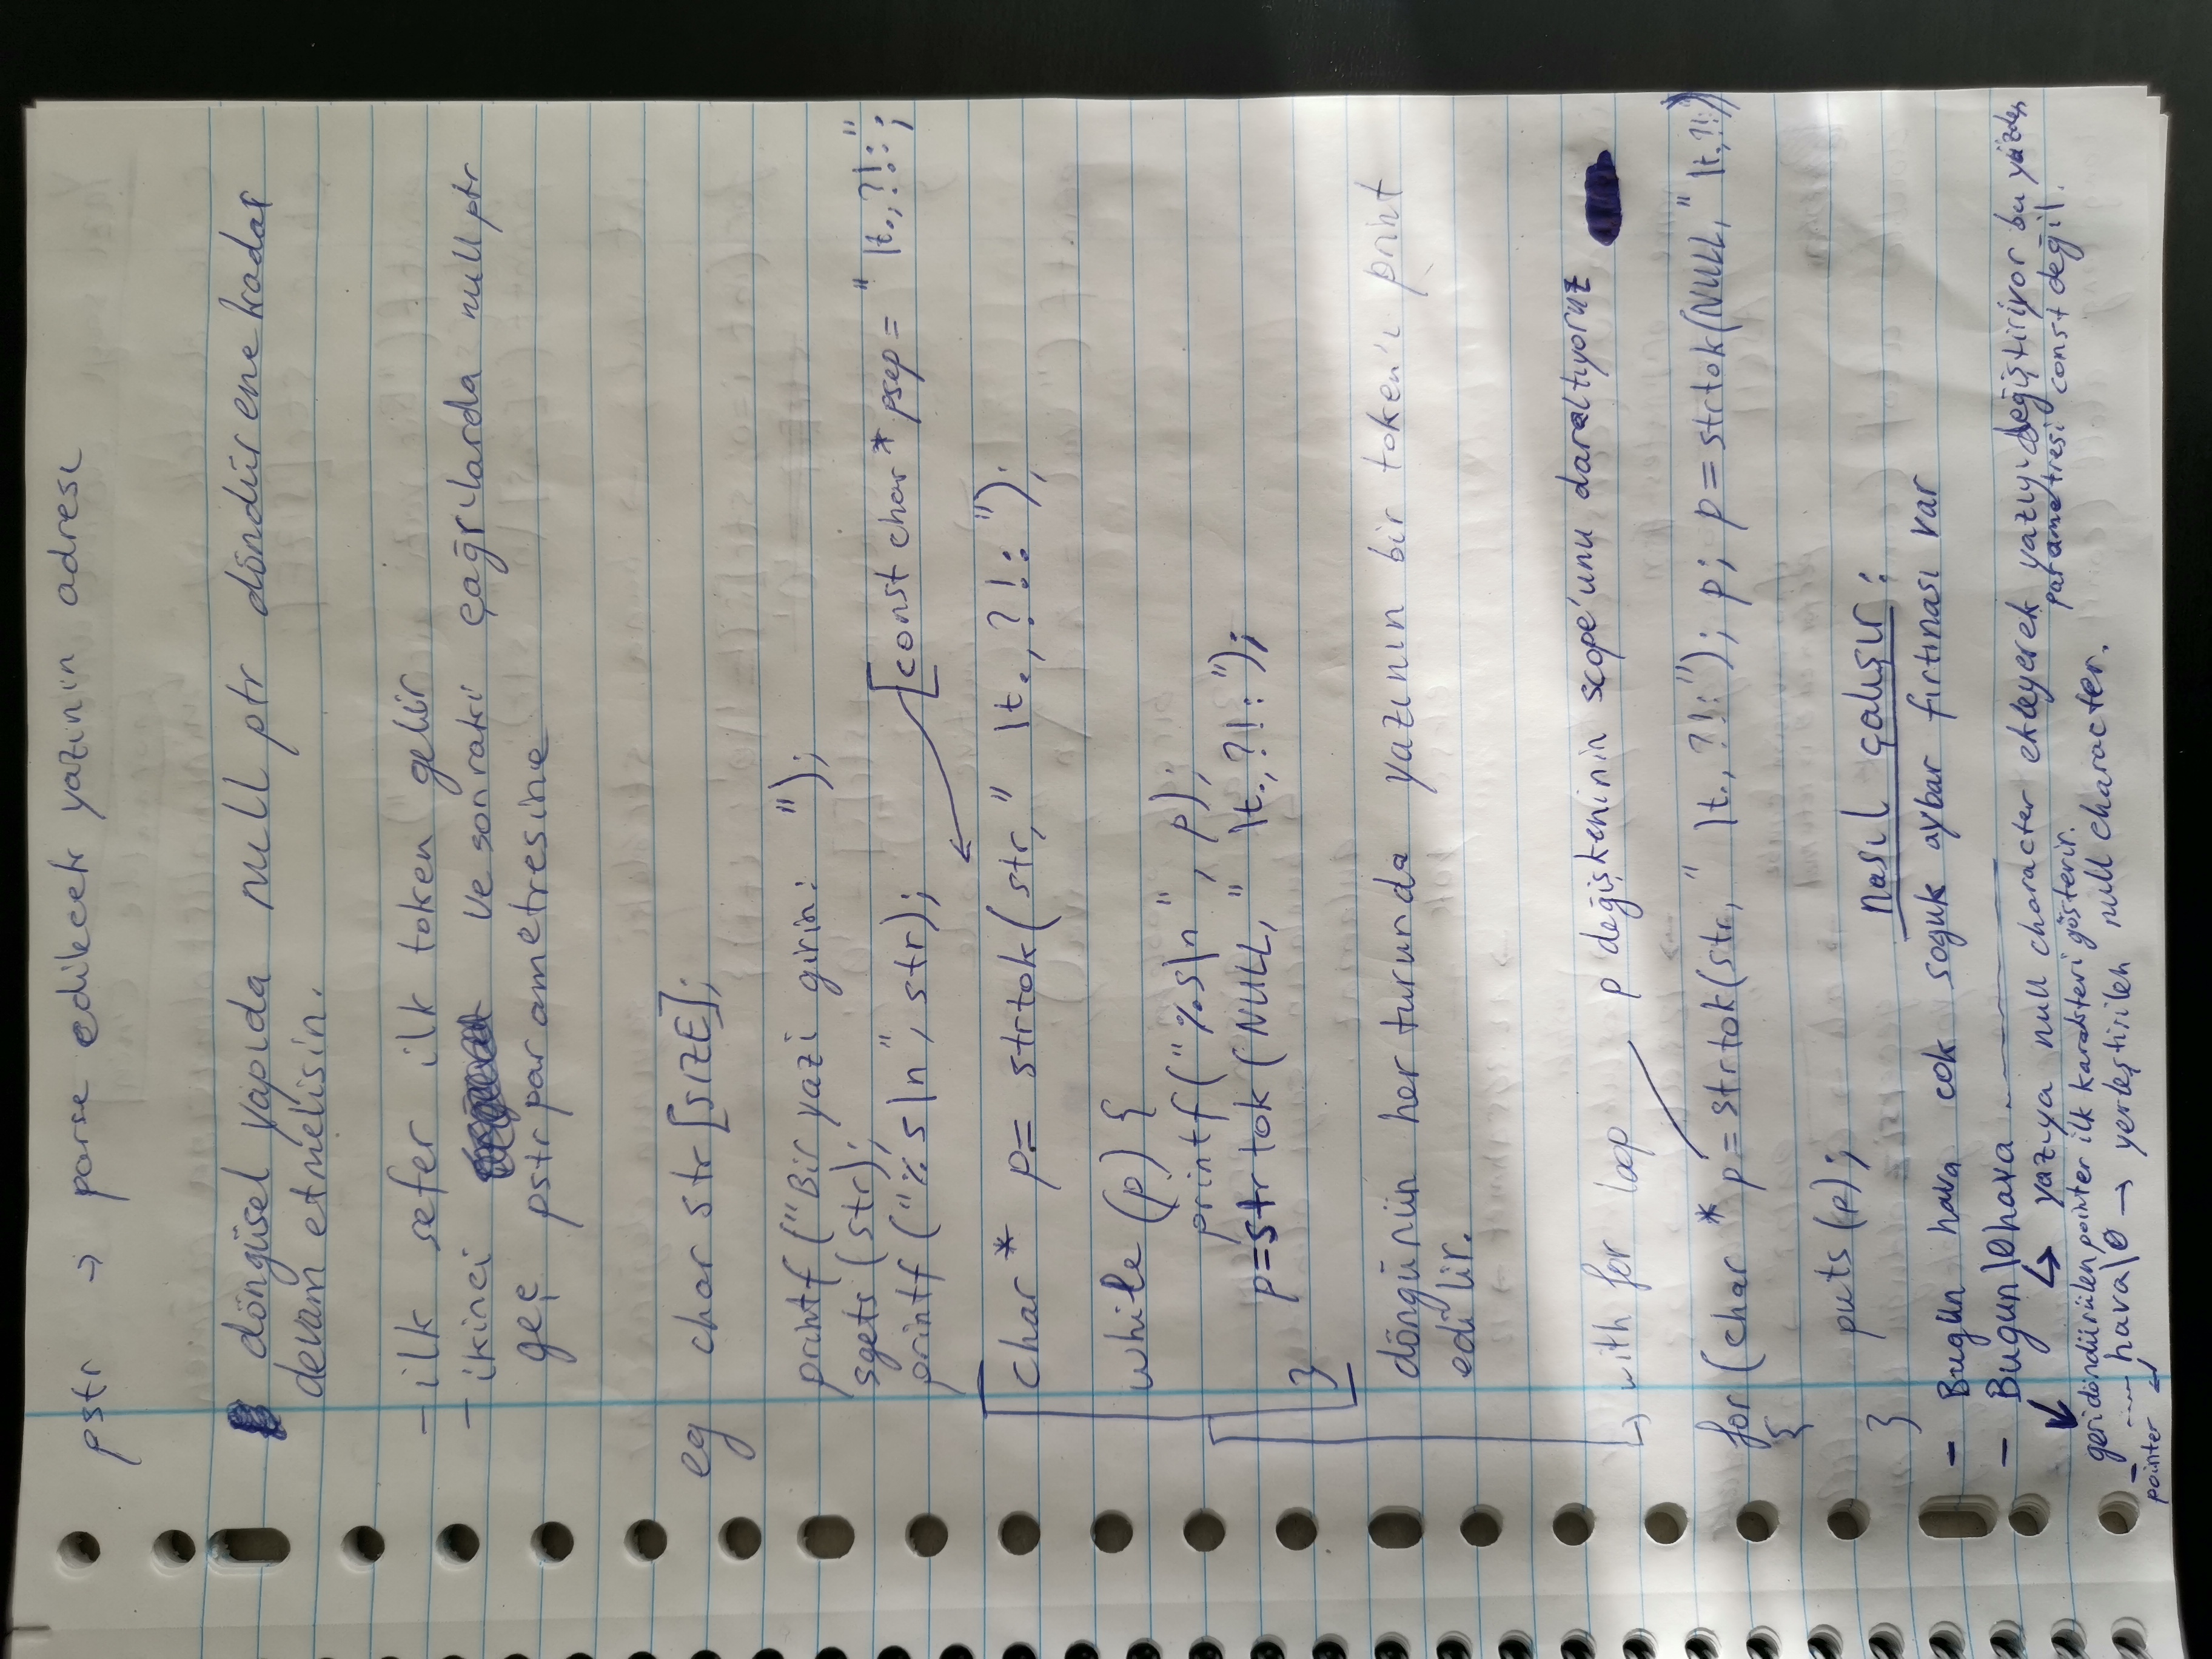 pstr → parse edilecek yazının adresi
döngüsel yapıda null ptr döndürene kadar
devam etmelisin.
- ilk sefer ilk token gelir
- ikinci ve sonraki çağrılarda null ptr
geç pstr parametresine
eg char str[SIZE];
printf("Bir yazi girin: ");
sgets(str);
printf("%s\n", str);
[const char* psep = " \t.,?!:";
char* p= strtok(str," \t.,?!:");
while (p) {
printf("%s\n", p);
p=strtok(NULL," \t.,?!:");
}
döngünün her turunda yazının bir token'ı print
edilir.
p değişkeninin scope'unu daraltıyoruz
↳ with for loop
for (char * p = strtok(str," \t.,?!:"); p; p = strtok(NULL," \t.,?!:")
{
puts(p);
}
nasıl çalışır:
- Bugun hava cok soguk aybar fırtınası var
- Bugun\0hava
↳ yazıya null character ekleyerek yazıyı değiştiriyor bu yüzden
parametresi const değil.
geri döndürülen pointer ilk karakteri gösterir.
- ..... hava\0 → yerleştirilen null character.
pointer ↵